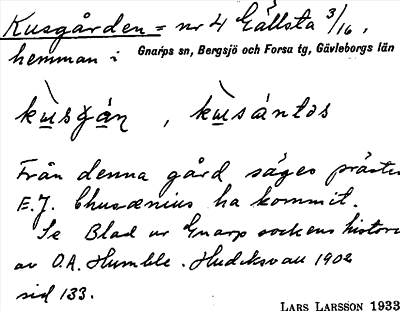 Kusgården = nr 4 Gällsta 3/16,
hemman i Gnarps sn, Bergsjö och Forsa tg, Gävleborgs län
kùsgán, kùsántɷs
Från denna gård säges präster
E.J. Chusænius ha kommit.
Se Blad ur Gnarp sockens histori
av O.A. Humble. Hudiksvall 1902
sid 133.
LARS LARSSON 1933